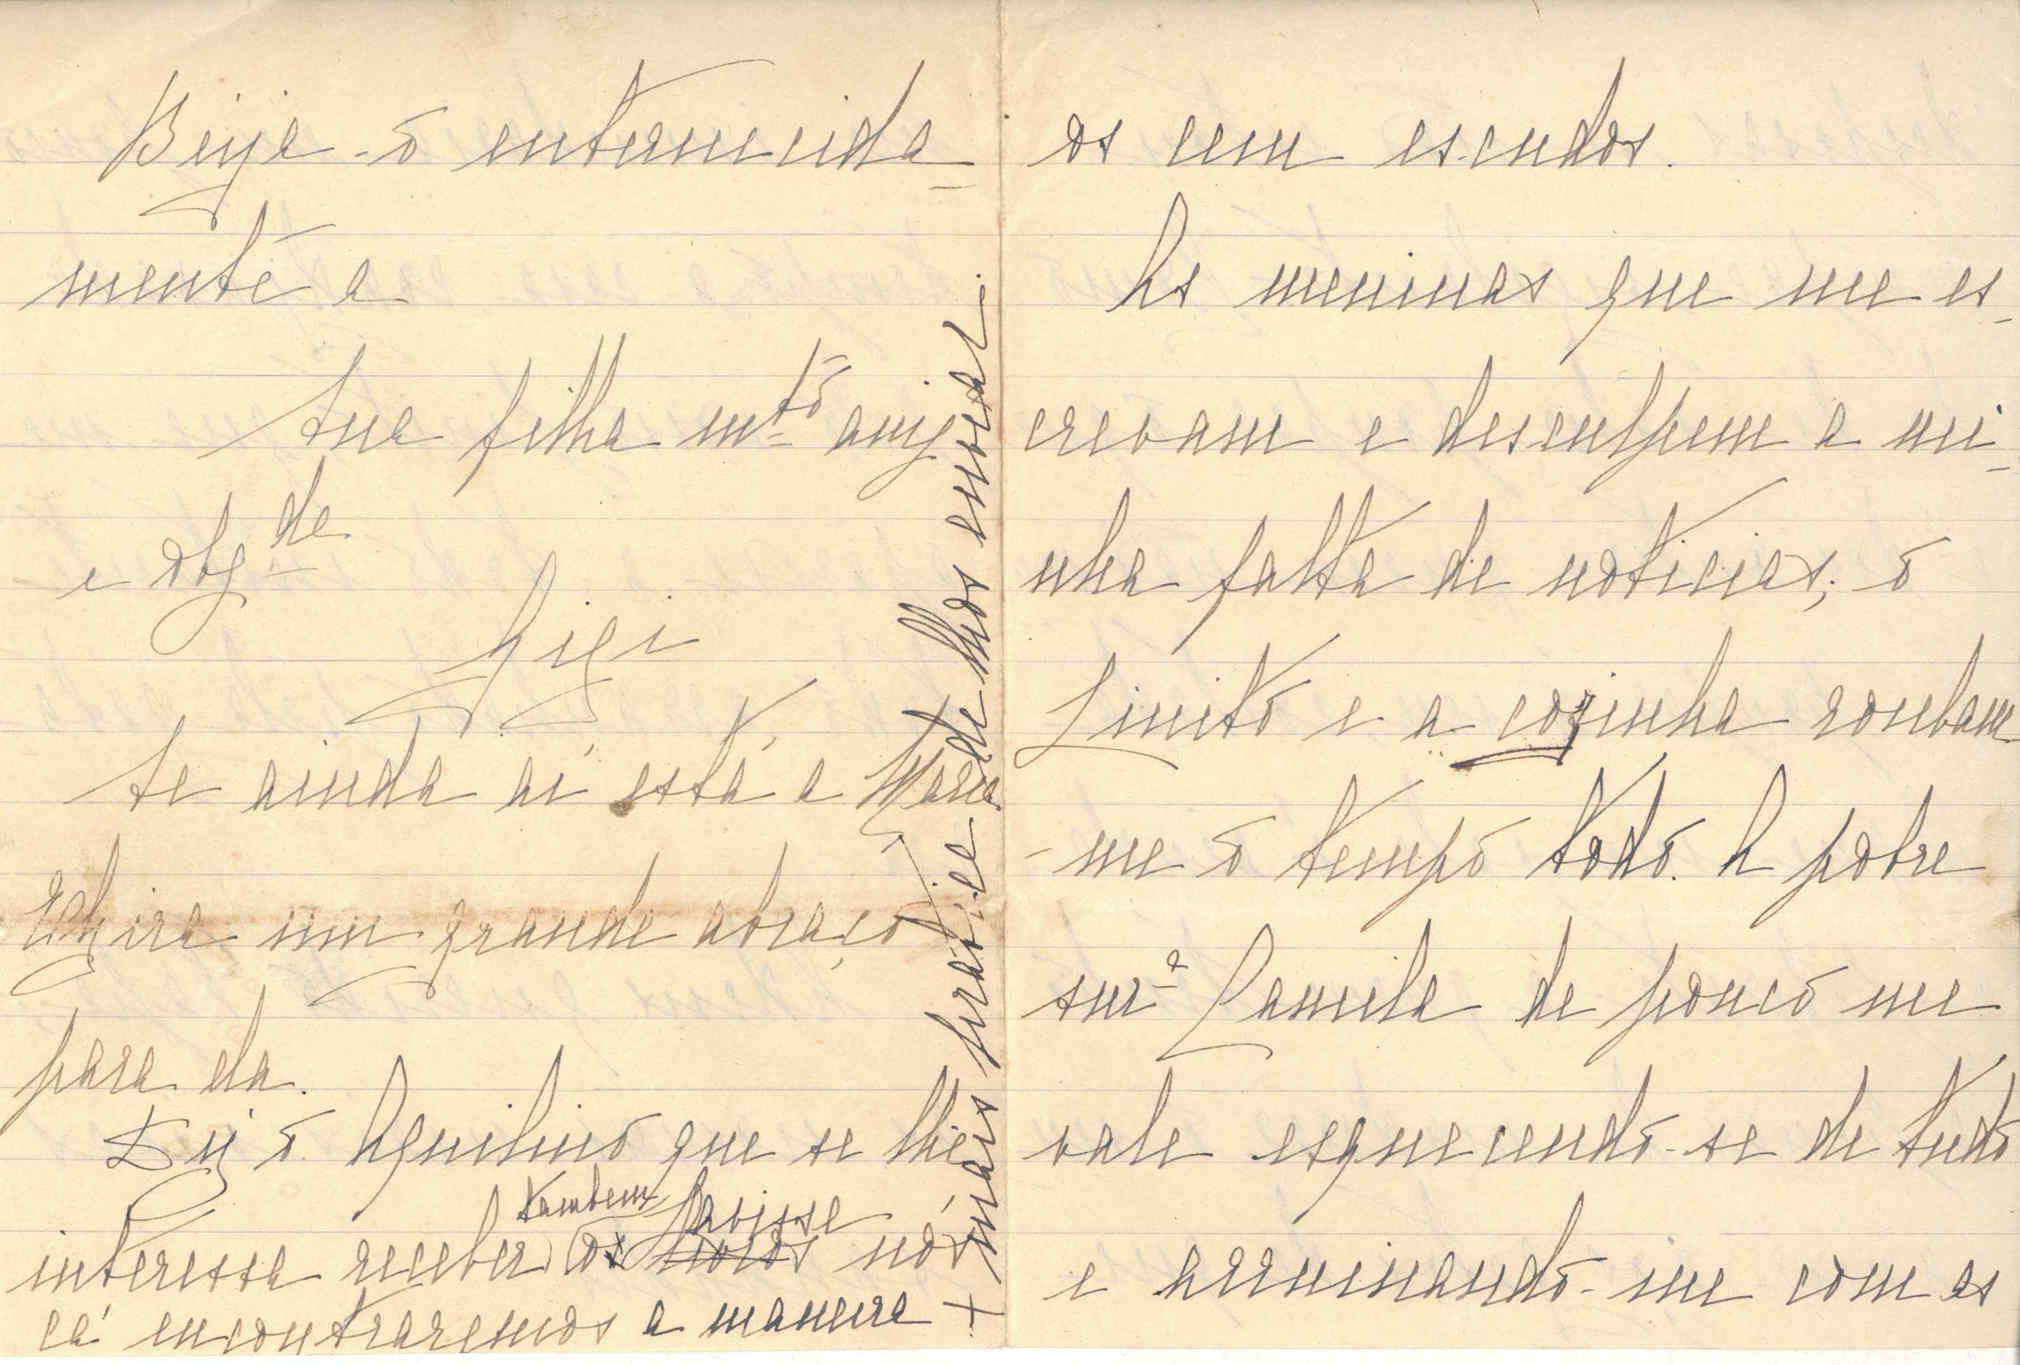 Beija-o enternecida-
mente a
Sua filha mtº amig
e obgde
Gigi
Se ainda aí está a Maria
Elzira um grande abraço
para ela.
Diz ó Aquilino que se lhe
interessa receber os livros nós
tambem Lavisse
cá encontraremos a maneira +
+ mais pratice de lhos enviar.
os cem escudos.
As meninas que me es-
crevam e desculpem a mi-
nha falta de noticias; o
Linito e a cozinha roubam
-me o tempo todo. A pobre
snrª Camila de pouco me
vale esquecendo-se de tudo
e arruinando-me com as